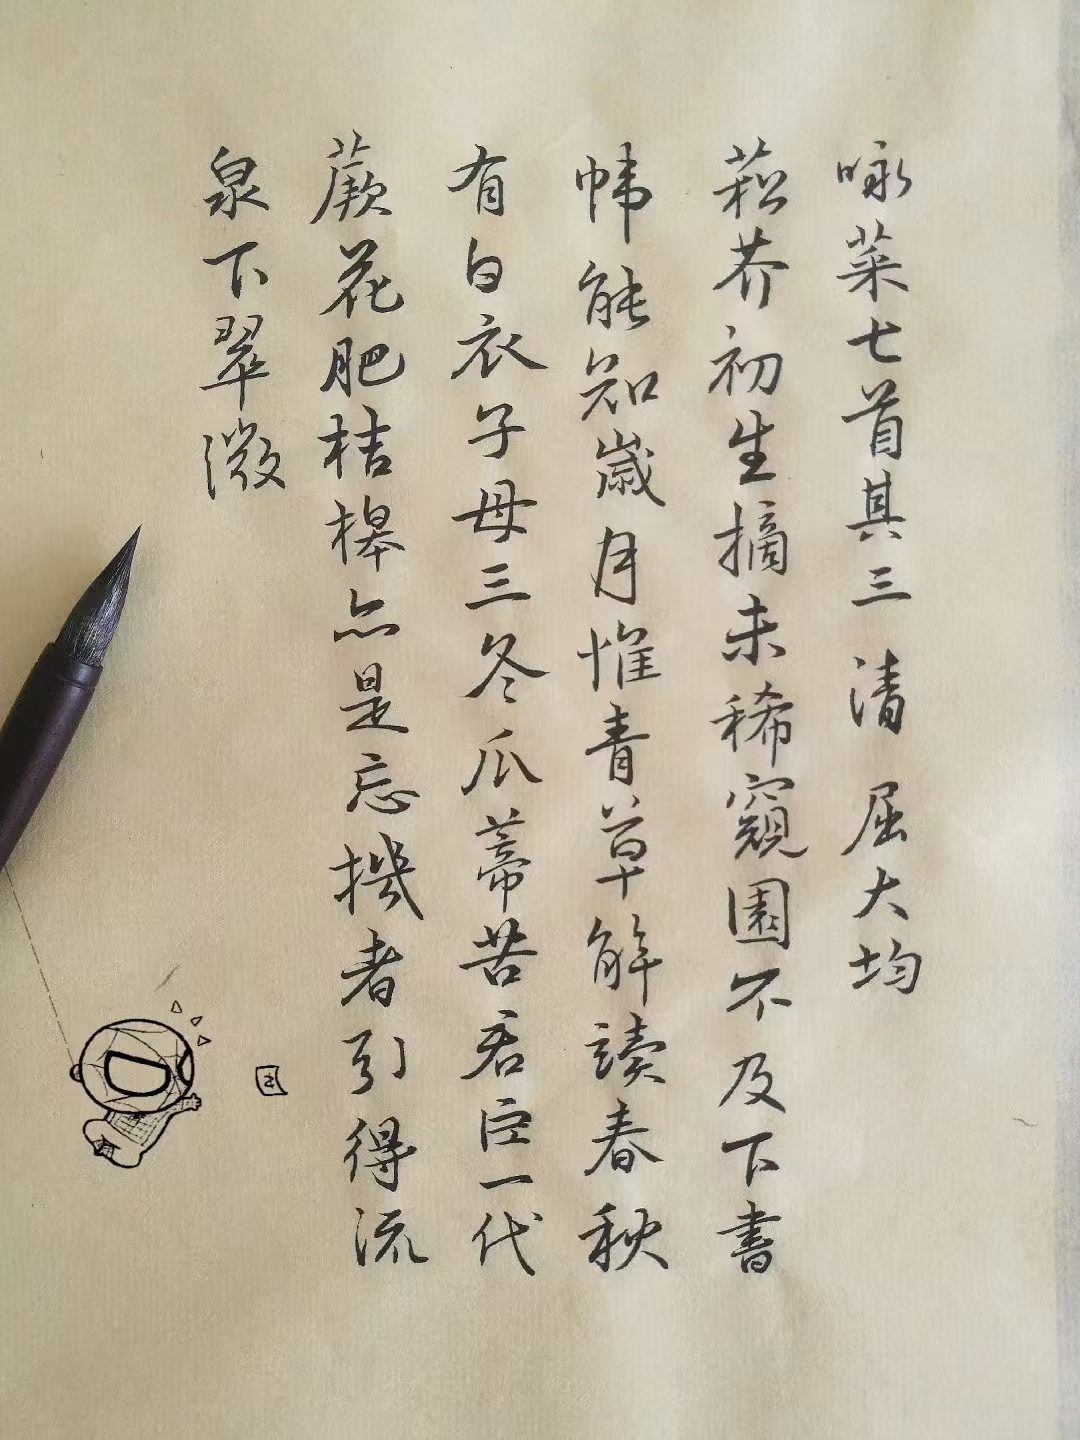 咏菜七首其三 清 屈大均
菘芥初生摘未稀窺園不及下書
幃能知歲月惟青草解讀春秋
有白衣子母三冬瓜蒂苦君臣一代
蕨花肥桔槔亦是忘機者引得流
泉下翠微